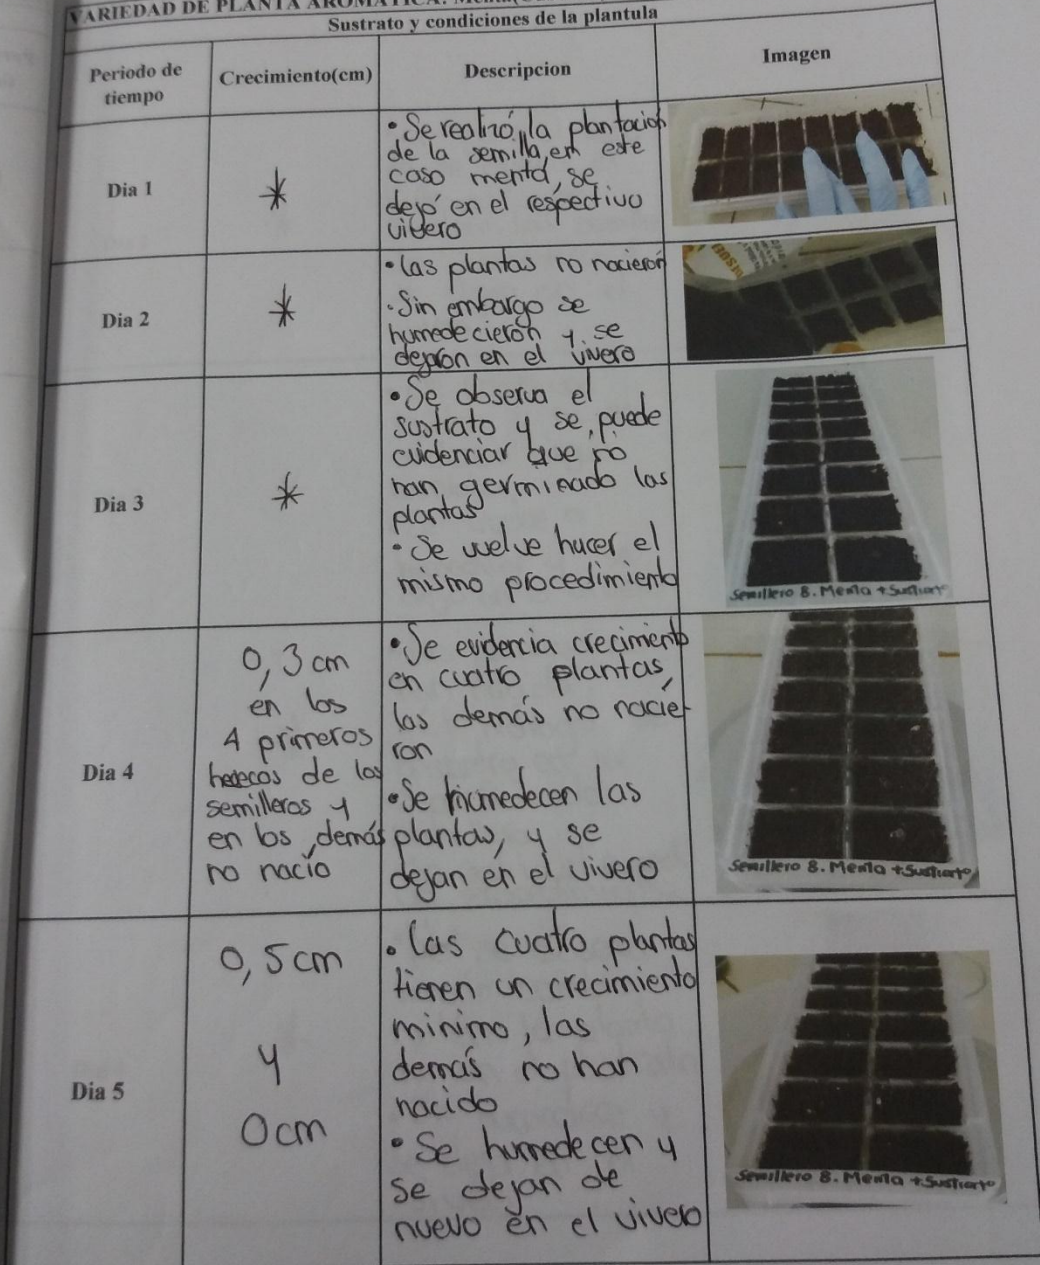 VARIEDAD DE PLANTA AROMATICA:
Sustrato y condiciones de la plantula
Periodo de
tiempo
Crecimiento(cm)
Descripcion
Imagen
Dia 1
*
• Se realizó la plantación
de la semilla, en este
caso menta, se
dejó en el respectivo
vivero
Dia 2
*
• las plantas no nacieron
• Sin embargo se
humedecierón y se
dejarón en el vivero
Dia 3
*
• Se observa el
sustrato y se puede
evidenciar que no
han germinado las
plantas
• Se vuelve hacer el
mismo procedimiento
Semillero 8. Menta + Sustrato
Dia 4
0,3 cm
en los
4 primeros
huecos de los
semilleros y
en los demás
no nació
• Se evidencia crecimiento
en cuatro plantas,
las demás no nacie-
ron
• Se humedecen las
plantas, y se
dejan en el vivero
Semillero 8. Menta + Sustrato
Dia 5
0,5 cm
y
0cm
• las cuatro plantas
tienen un crecimiento
minimo, las
demás no han
nacido
• Se humedecen y
se dejan de
nuevo en el vivero
Semillero 8. Menta + Sustrato